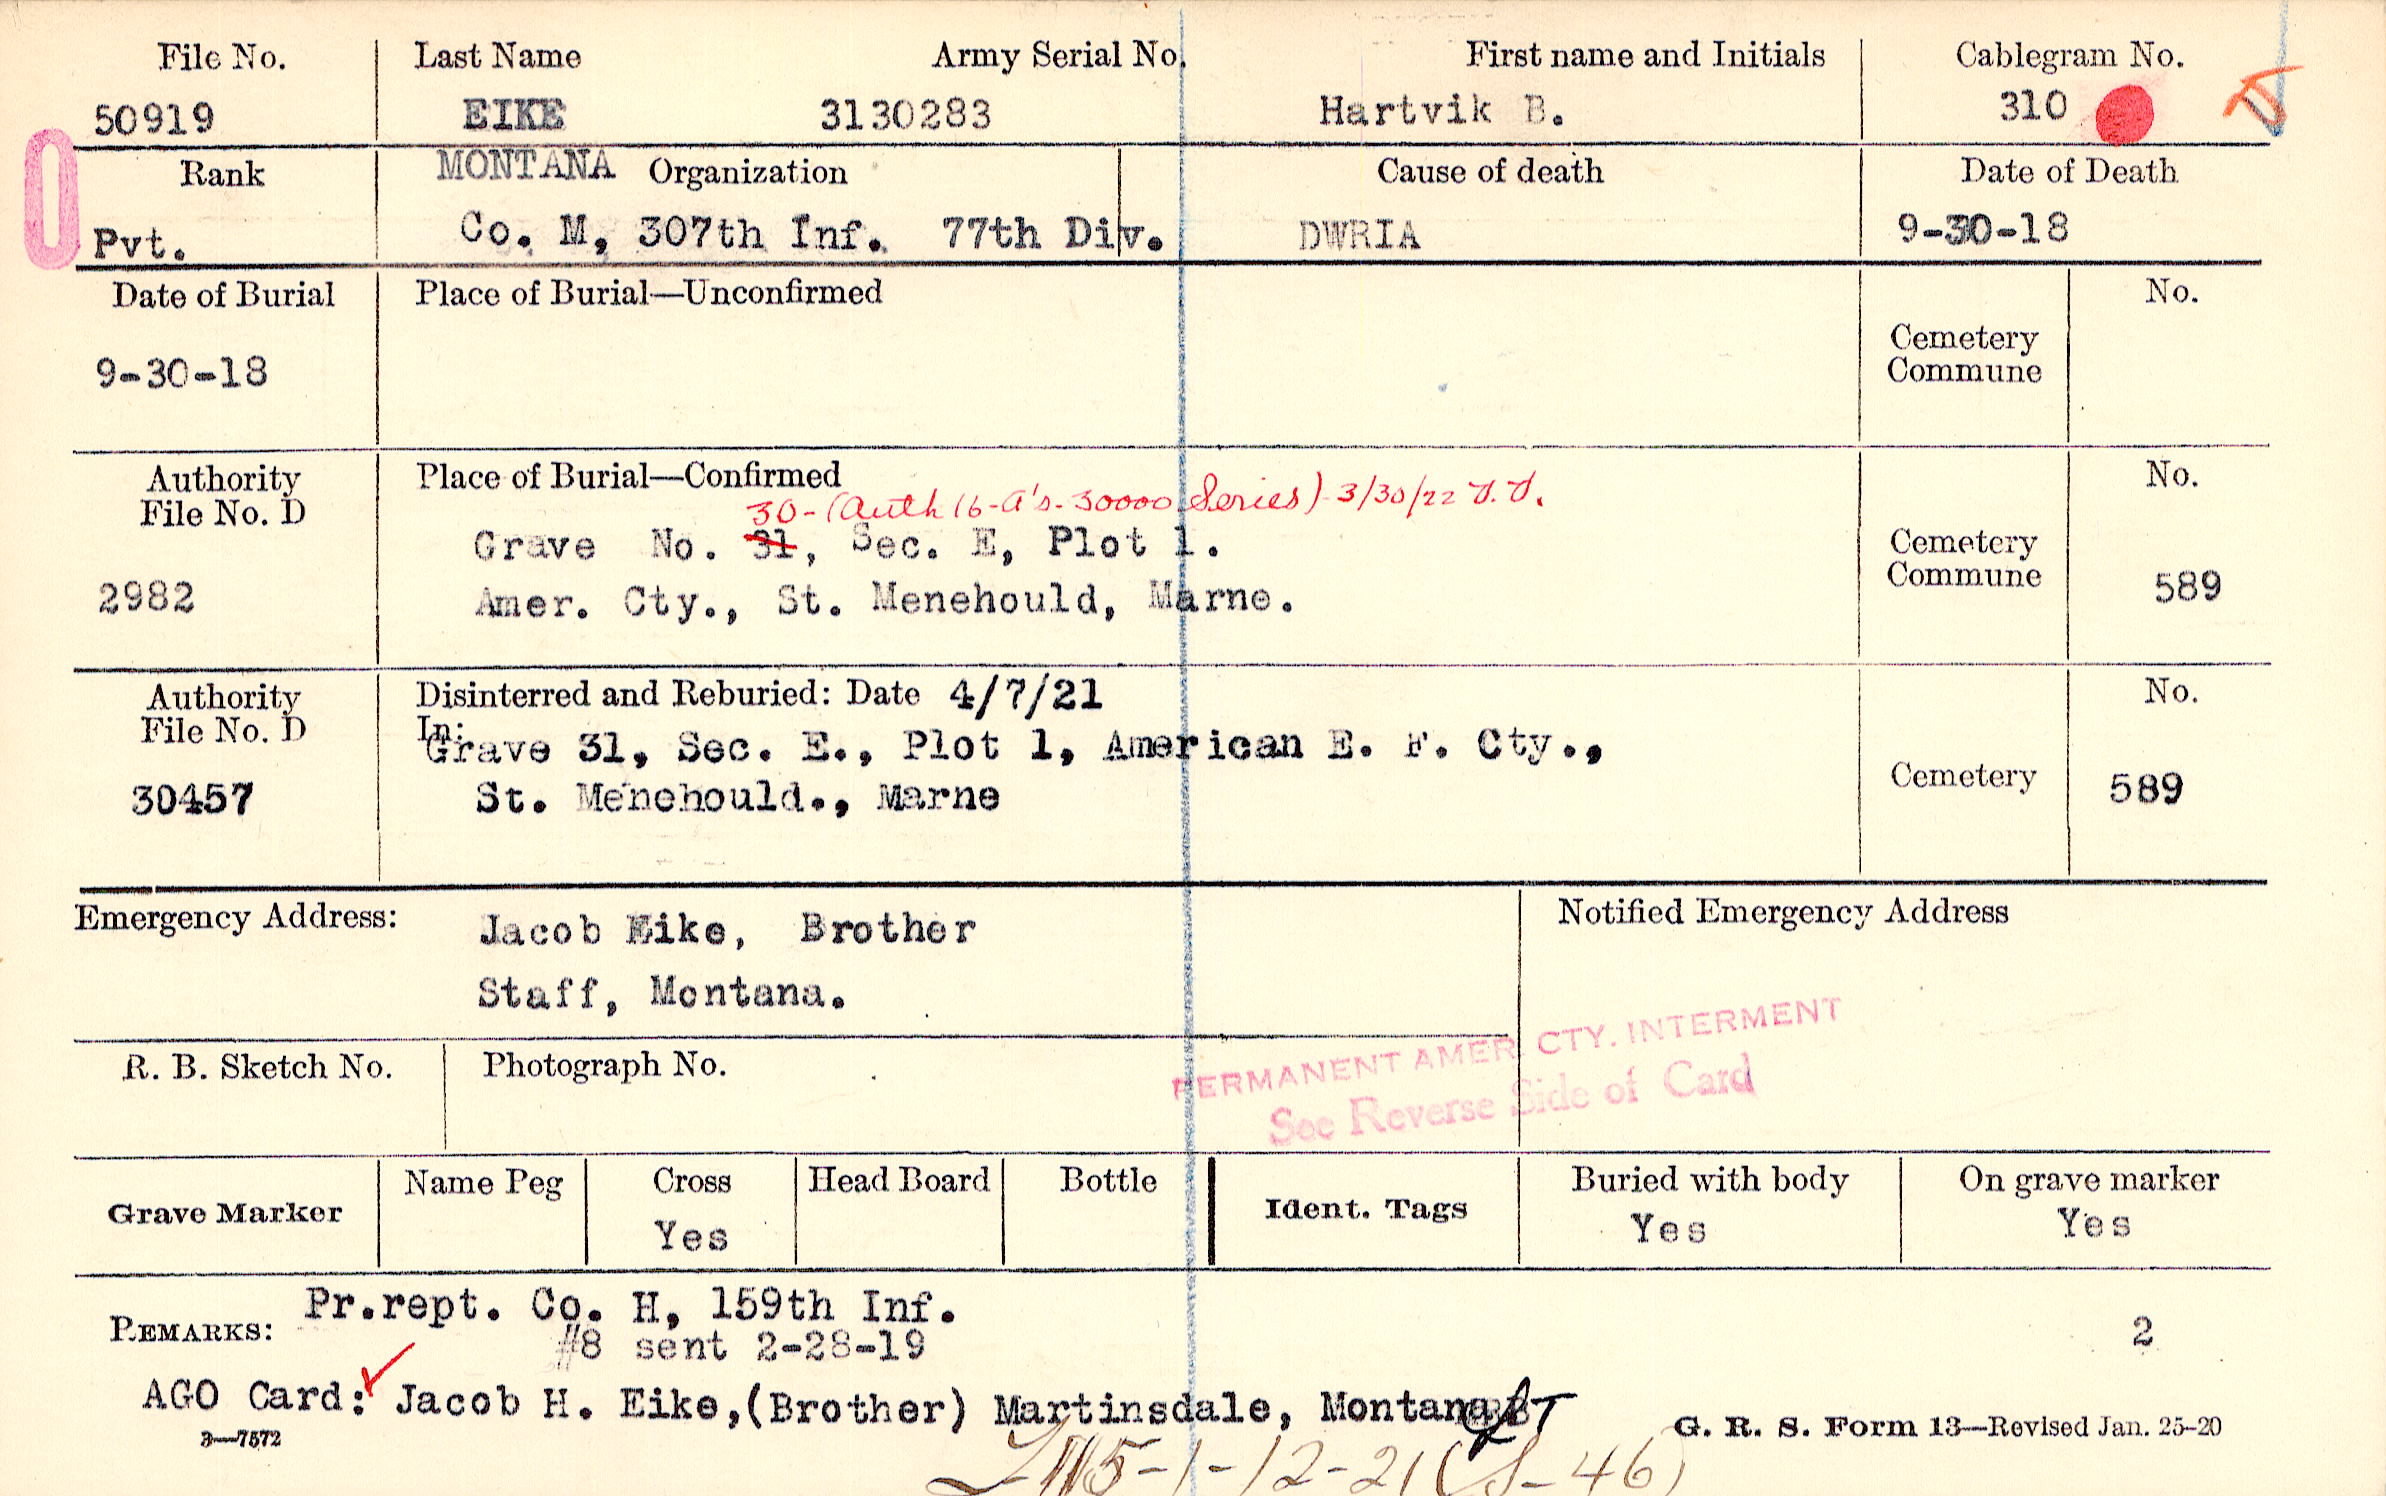 File No. Last Name Army Serial No. First name and Initials Cablegram No.
50919 EIKE 3130283 Hartvik B. 310
Rank MONTANA Organization Cause of death Date of Death
Pvt. Co. M, 307th Inf. 77th Div. DWRIA 9-30-18
Date of Burial Place of Burial—Unconfirmed No.
Cemetery
Commune
9-30-18
Authority Place of Burial—Confirmed No.
File No. D 30-(Auth 16-A's-30000 Series) 3/30/22
Grave No. 31, Sec. E, Plot 1. Cemetery
Commune 589
2982 Amer. Cty., St. Menehould, Marne.
Authority Disinterred and Reburied: Date 4/7/21 No.
File No. D In:
Grave 31, Sec. E., Plot 1, American E. F. Cty.,
30457 St. Menehould., Marne Cemetery 589
Emergency Address: Jacob Eike, Brother Notified Emergency Address
Staff, Montana.
PERMANENT AMER. CTY. INTERMENT
See Reverse Side of Card
R. B. Sketch No. Photograph No.
Grave Marker Name Peg Cross Head Board Bottle Ident. Tags Buried with body On grave marker
Yes Yes Yes
REMARKS: Pr.rept. Co. H, 159th Inf.
#8 sent 2-28-19 2
AGO Card: Jacob H. Eike,(Brother) Martinsdale, Montana
3—7572 G. R. S. Form 13—Revised Jan. 25-20